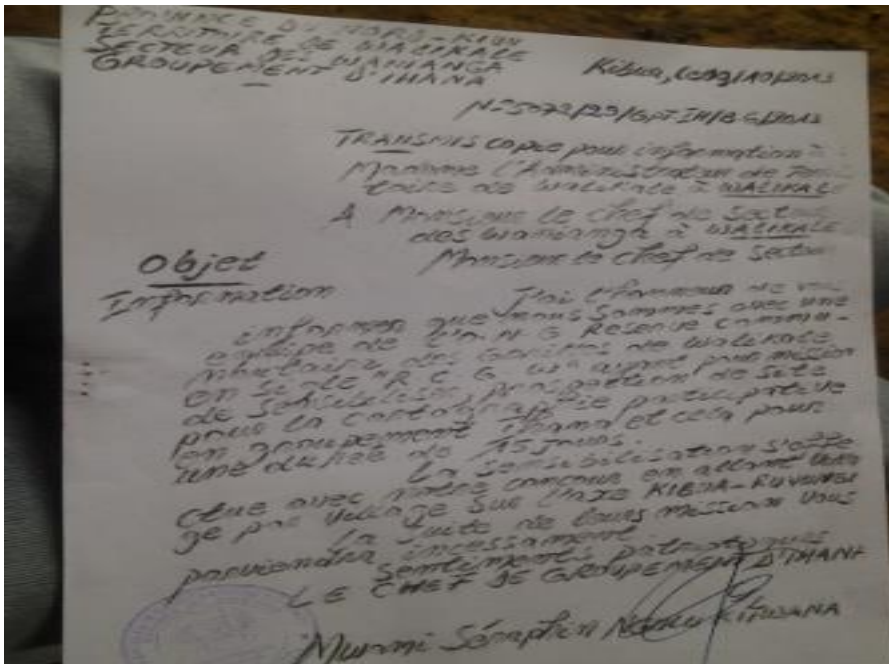 PROVINCE DU NORD-KIVU
TERRITOIRE DE WALIKALE
SECTEUR DES WANIANGA
GROUPEMENT D'IHANA
Kibua, le
TRANSMIS copie pour information à
Madame l'Administrateur de Terri-
toire de Walikale à WALIKALE
A Monsieur le Chef de Secteur
des Wanianga à WALIKALE
Objet
Monsieur le Chef de Secteur
Information
J'ai l'honneur de vous
informer que nous sommes avec une
équipe de Reserve Commu-
nautaire des Gorilles de Walikale
en sigle "R C G W" ayant pour mission
de sensibiliser, prospection de site
pour la cartographie participative
en groupement Ihana et cela pour
une durée de 15 Jours.
La sensibilisation s'effe
ctue avec notre concours en allant villa
ge par village sur l'axe KIBUA-
La suite de leurs missions vous
parviendra incessament
Sentiments patriotiques
LE CHEF DE GROUPEMENT D'IHANA
Séraphin